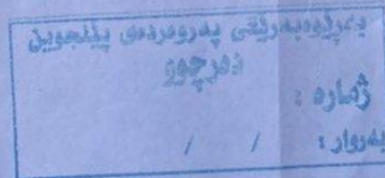 بەڕێوەبەرێتی پەروەردەی پێنجوین
دەرچوو
ژمارە :
بەروار : / /